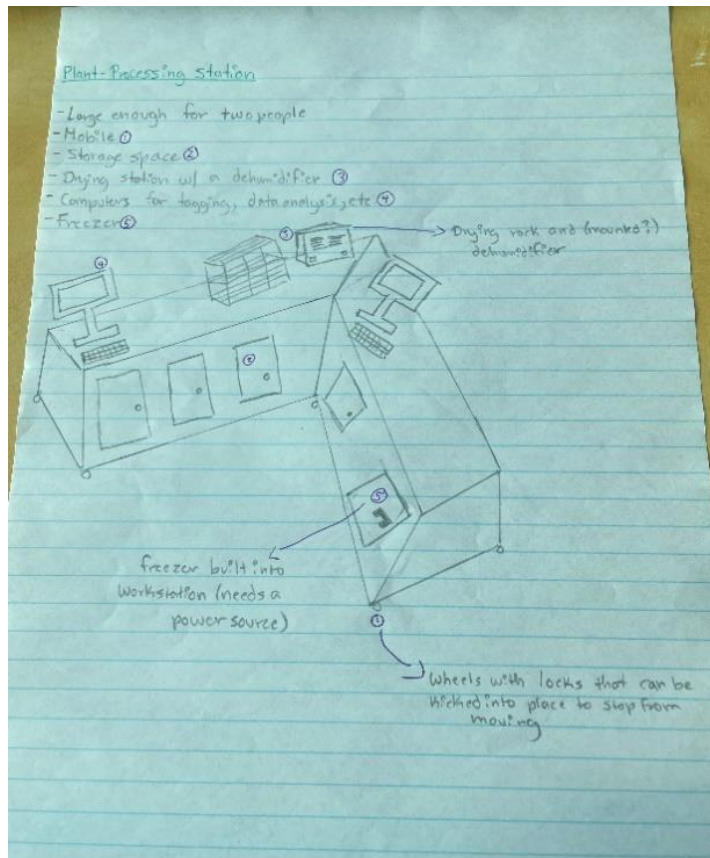 Plant-Processing Station
- Large enough for two people
- Mobile ①
- Storage space ②
- Drying station w/ a dehumidifier ③
- Computers for tagging, data analysis, etc ④
- Freezer ⑤
③
Drying rack and (mounted?)
dehumidifier
④
②
⑤
freezer built into
workstation (needs a
power source)
①
Wheels with locks that can be
kicked into place to stop from
moving